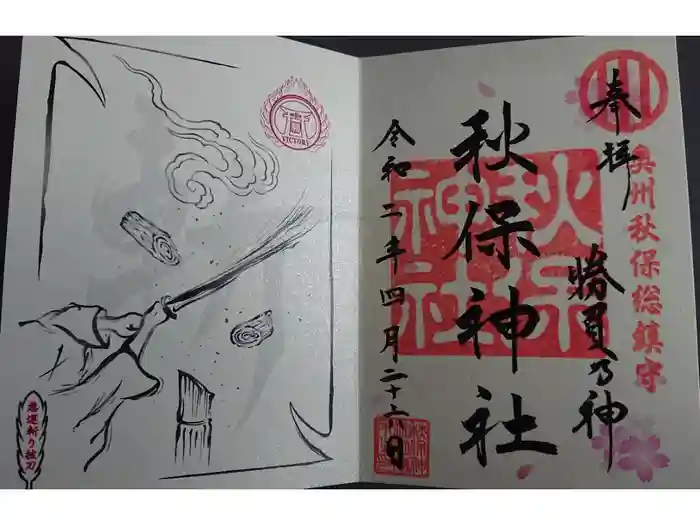 奉拝
奥州秋保総鎮守
勝負乃神
秋保神社
秋保神社
令和二年四月二十六日
VICTORY
悪運斬り抜刀